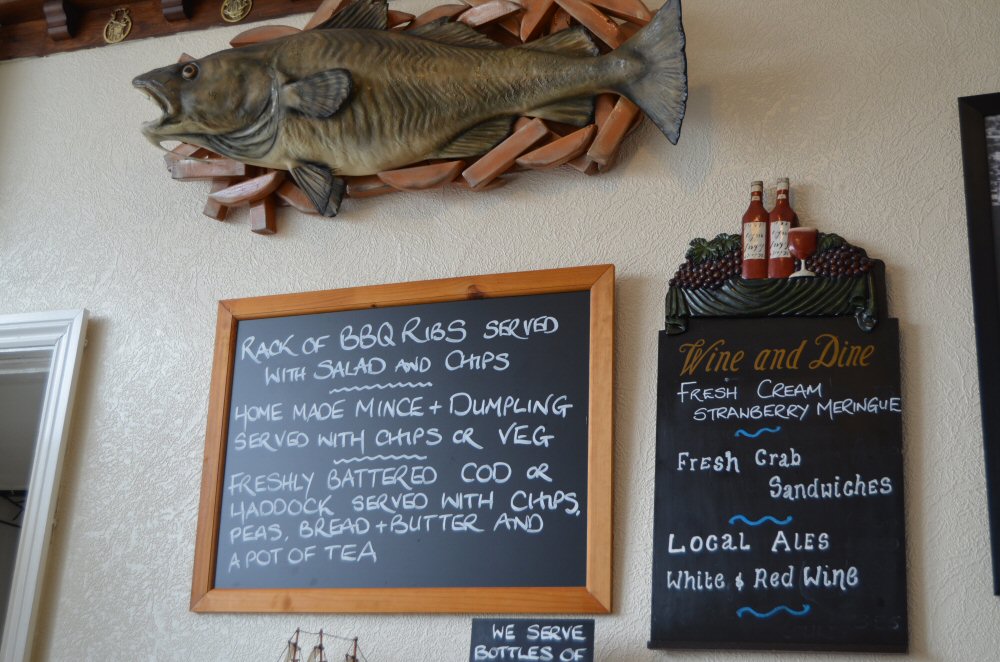 RACK OF BBQ RIBS SERVED
WITH SALAD AND CHIPS
HOME MADE MINCE + DUMPLING
SERVED WITH CHIPS OR VEG
FRESHLY BATTERED COD OR
HADDOCK SERVED WITH CHIPS,
PEAS, BREAD + BUTTER AND
A POT OF TEA
Wine and Dine
FRESH CREAM
STRANBERRY MERINGUE
Fresh Crab
Sandwiches
Local Ales
White & Red Wine
WE SERVE
BOTTLES OF